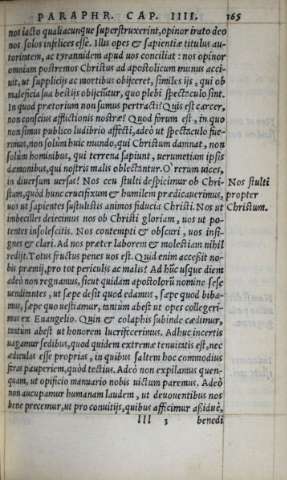 PARAPHR. CAP. IIII. 165
non iacto qualiacunque superstruxerint, opinor irato deo
nos solos infelices esse. Illus opes & sapientiæ titulus au-
torintem, ac tyrannidem apud uos conciliat : nos opinor
omnium postremos Christus ad apostolicum munus acci-
uit, ut supplicijs ac mortibus obijceret, similes ijs, qui ob
maleficia sua bestijs obijciūtur, quo plebi spectaculo sint.
In quod prætorium non sumus pertracti? Quis est carcer,
non conscius afflictionis nostræ? Quod forum est, in quo
non simus publico ludibrio affecti, adeò ut spectaculo fue-
rimus, non solùm huic mundo, qui Christum damnat, non
solùm hominibus, qui terrena sapiunt, uerumetiam ipsis
dæmonibus, qui nostris malis oblectantur. O rerum uices,
in diuersum uersas! Nos ceu stulti despicimur ob Chri-
stum, quòd hunc crucifixum & humilem prædicauerimus,
uos ut sapientes sustulistis animos fiducia Christi. Nos ut
imbecilles deiecimus nos ob Christi gloriam, uos ut po-
tentes insolescitis. Nos contempti & obscuri, uos insi-
gnes & clari. Ad nos præter laborem & molestiam nihil
redijt. Totus fructus penes uos est. Quid enim accessit no-
bis præmij, pro tot periculis ac malis? Ad hūc usque diem
adeò non regnamus, sicut quidam apostolorū nomine sese
uenditantes, ut sæpe desit quod edamus, sæpe quod biba-
mus, sæpe quo uestiamur, tantum abest ut opes collegeri-
mus ex Euangelio. Quin & colaphis subinde cædimur,
tantum abest ut honorem lucrifecerimus. Adhuc incertis
uagamur sedibus, quod quidem extremæ tenuitatis est, nec
ædiculas esse proprias, in quibus saltem hoc commodius
feras pauperiem, quòd tectius. Adeò non expilamus quen-
quam, ut opificio manuario nobis uictum paremus. Adeò
non aucupamur humanam laudem, ut deuouentibus nos
bene precemur, ut pro conuitijs, quibus afficimur assiduè,
III 3 benedi
Nos stulti
propter
Christum.